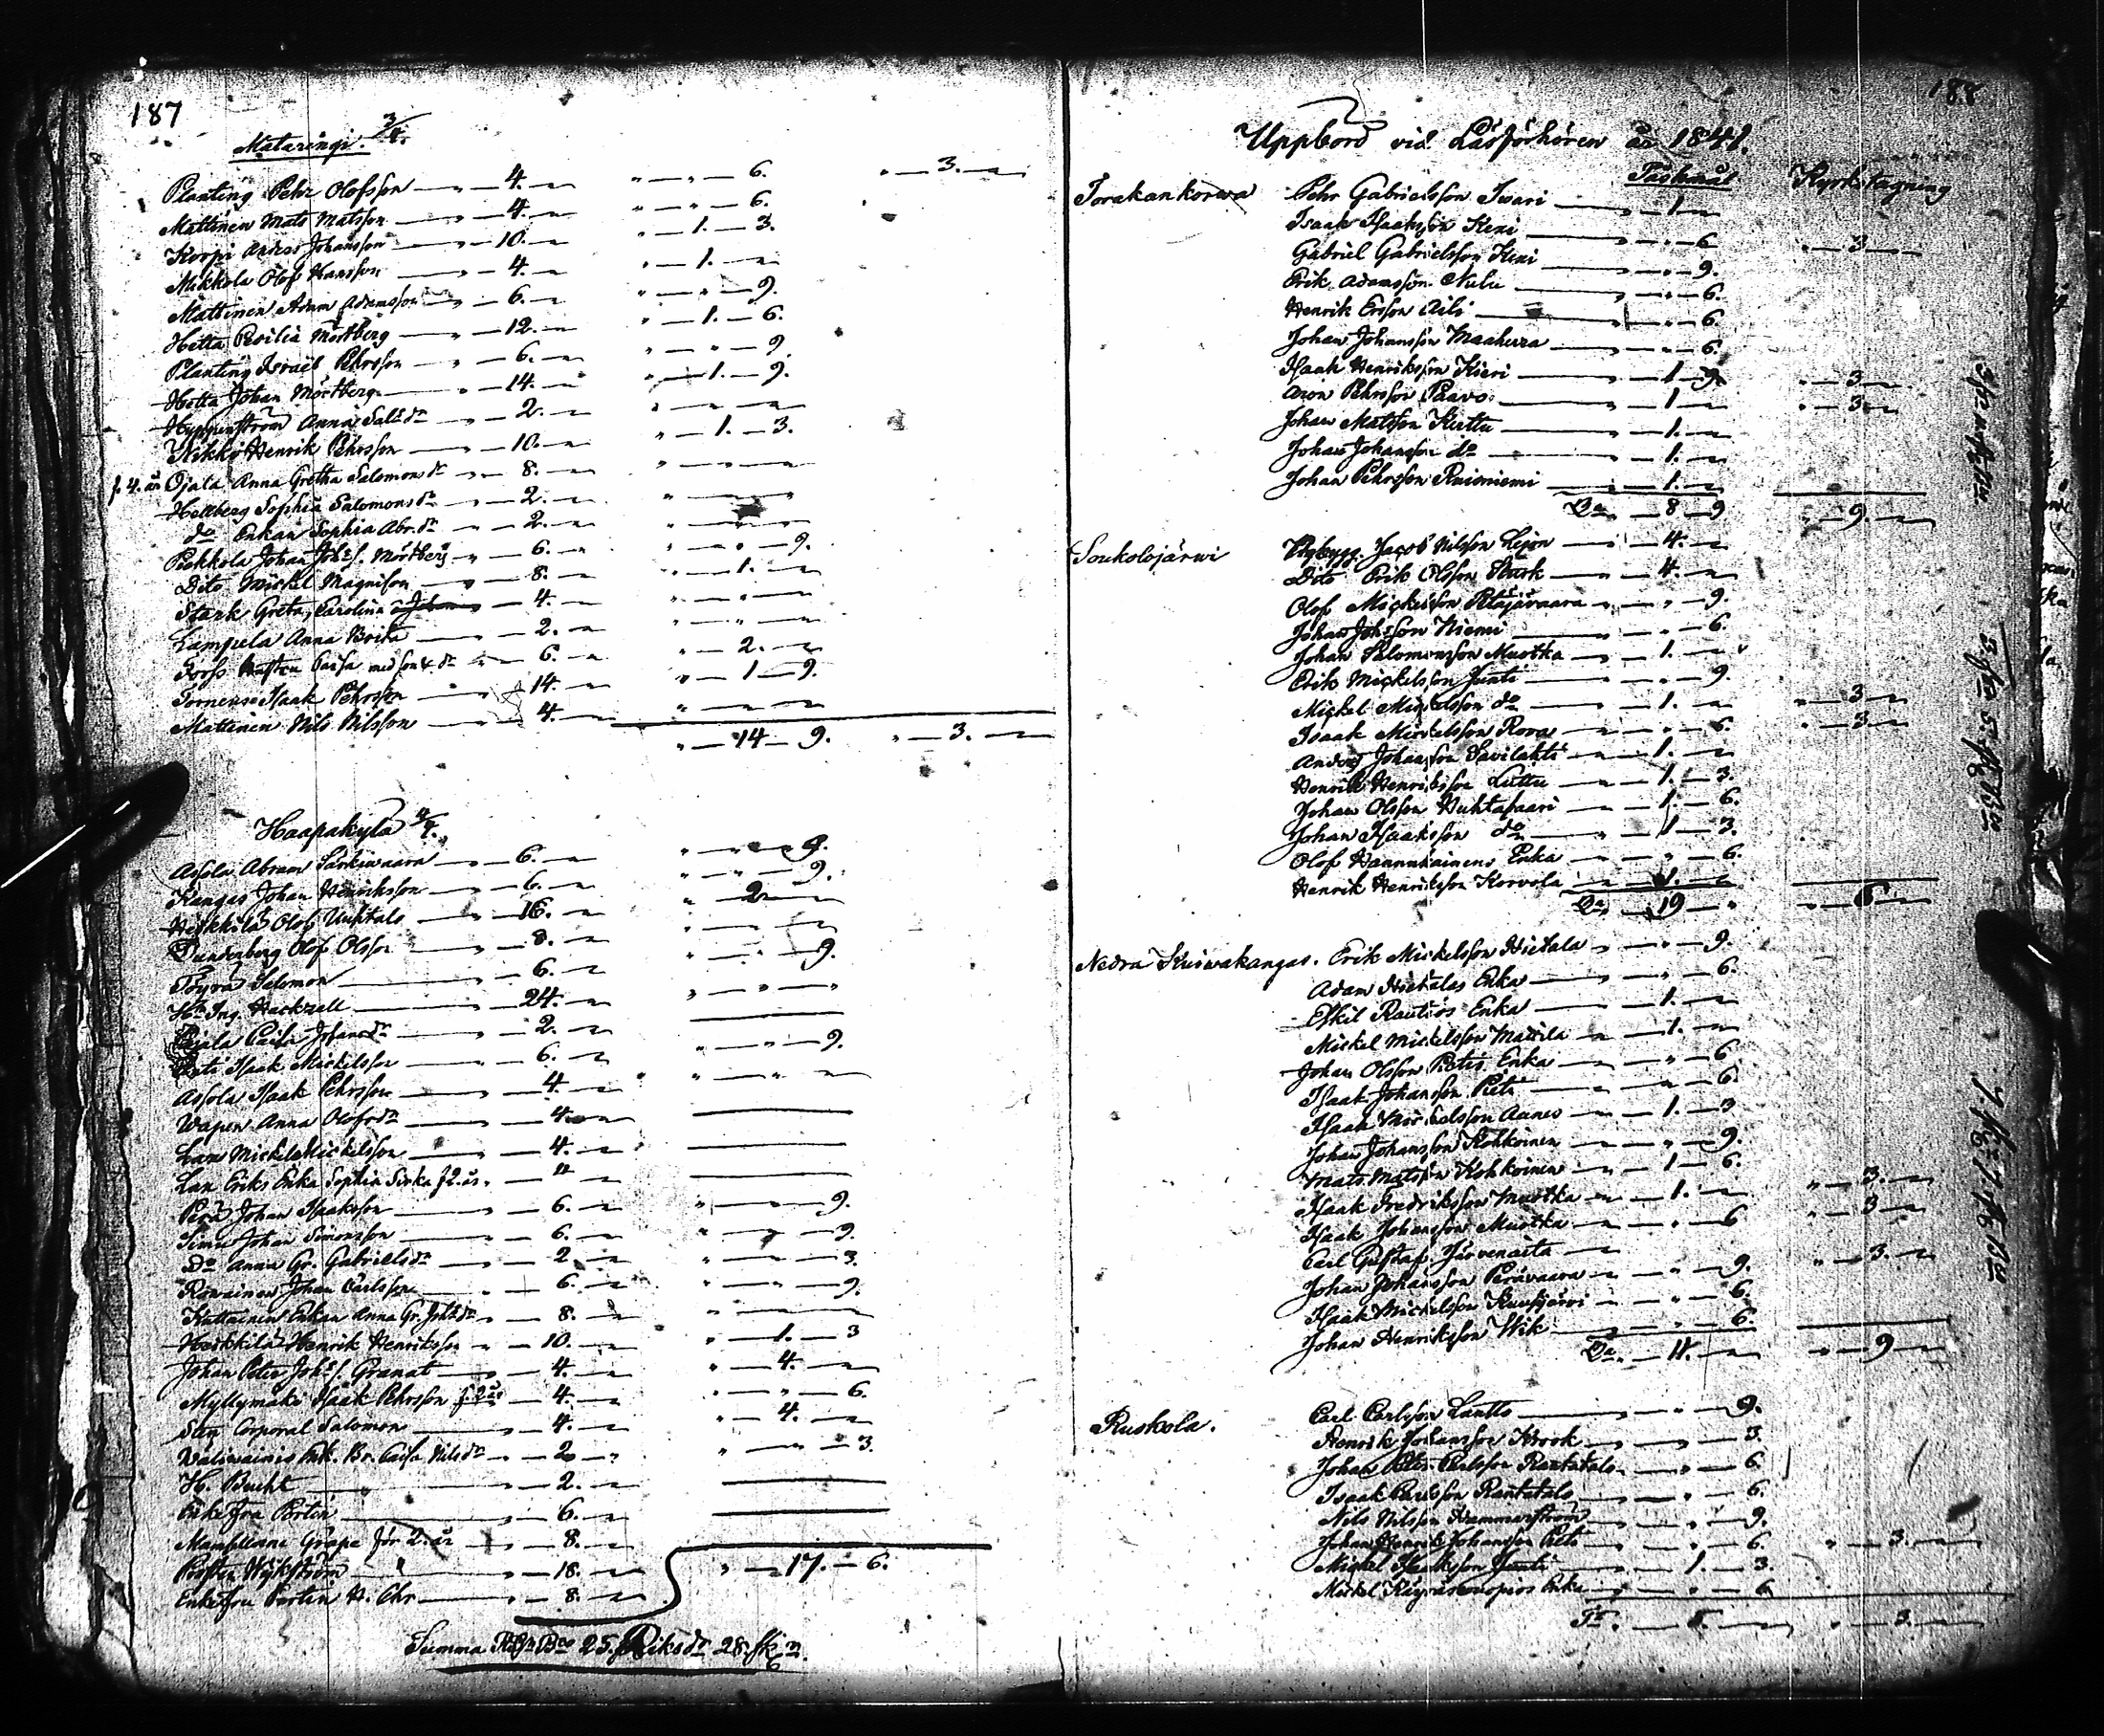 187
Matarengi. 3/4.
Planting Pehr Olofsson — " — 4. — " — " — 6. " — 3. —
Mattinen Mats Matsson — 4. — " — " — 6.
Korpi Anders Johansson — 10. — " — 1. — 3.
Mikkola Olof Hansson — 4. — " — 1. —
Mattinen Adam Adamsson — 6. — " — " — 9.
Hetta Cecilia Mörtberg — 12. — " — 1. — 6.
Planting Israel Pehrsson — 6. — " — " — 9.
Hetta Johan Mörtberg — 14. — " — 1. — 9.
Anna Sal:dr — 2. —
Nikko Henrik Pehrsson — 10. — " — 1. — 3.
f. 4. år Ojala Anna Gretha Salomonsdr — 8. —
Hellberg Sophia Salomonsdr — 2. —
do Enkan Sophia Abr.dr — 2. —
Piekkola Johan Joh:s. Mörtberg — 6. — " — " — 9.
Dito Mickel Magnisson — 8. — " — 1. —
Stark Greta, Carolina — 4. —
Lampela Anna Brita — 2. —
Forss Caisa med son & dr — 6. — " — 2. —
Torneus Isaak Pehrsson — 14. — " — 1 — 9.
Mattinen Nils Nilsson — 4. —
" — 14 — 9. " — 3. —
Haapakylä 4/4.
Assola Abram Särkiwaara — 6. — " — " — 9.
Kangas Johan Henriksson — 6. — " — " — 9.
Heikkilä Olof Uuhtalo — 16. — " 2 —
Sundenberg Olof Olsson — 8. —
Töyrä Salomon — 6. — " — " — 9.
Hr Ing. Hackzell — 24. —
Caisa Johansdr — 2. —
Isaak Mickelsson — 6. — " — " — 9.
Assola Isaak Pehrsson — 4. —
Wapen Anna Olofsdr — 4. —
Lax Mickel Mickelsson — 4. —
Lax Eriks Enka Sophia f 2. år. — 4
Perä Johan Isaaksson — 6. — " — " — 9.
Simu Johan Simonsson — 6. — " — " — 9.
Do Anna Gr. Gabrielsdr — 2. — " — " — 3.
Rowainen Johan Carlsson — 6. — " — " — 9.
Kuttainen Enkan Anna Gr. Joh:dr — 8. —
Heikkilä Henrik Henriksson — 10. — " — 1. — 3
Johan Peter Joh:s. Granat — 4. — " — 4. —
Myllymaki Isaak Pehrsson f. 2 år — 4. — " — " — 6.
Sten Corporal Salomon — 4. — " — 4. —
Wäliwainio Enk. Br. Caisa Nilsdr — 2 — " — " — 3.
H. Bucht — 2. —
Enkefru Portin — 6. —
Grape för 2. år — 8. —
Prosten Wikström — 18. —
Enkefru Portin H. Chr — 8. —
" — 17. — 6.
Summa Rdr Bco 25. Riksdr 28. sk
188
Uppbörd vid Läsförhören år 1841.
Påskmål Kyrktagning
Torakankorwa Pehr Gabrielsson Iwari — 1 —
Isaak Isaaksson Keni — " — 6 " — 3 —
Gabriel Gabrielsson Keni — " — 9.
Erik Adamsson Nulu — " — 6.
Henrik Ersson Aili — " — 6.
Johan Johansson — " — 6.
Isaak Henriksson Kieri — 1 — 9. " — 3 —
Aron Pehrsson Paavo — 1. — " — 3 —
Johan Matsson Kuttu — 1. —
Johan Johansson do — 1. —
Johan Pehrsson Ruioniemi — 1. —
— 8 — 9 " — 9. —
Soukolojärwi Nybygg. Jacob Nilsson Lejon — 4. —
Dito Erik Olsson Stark — 4. —
Olof Mickelsson Petäjävaara — " — 9.
Johan Johsson Niemi — " — 6.
Johan Salomonsson Muotka — 1. —
Erik Mickelsson Junti — " — 9
Mickel Mickelsson do — 1. — " — 3 —
Isaak Mickelsson Rova — " — 6. " — 3 —
Anders Johansson Savilahti — 1. —
Henrik Henriksson Luttu — 1. — 3.
Johan Olsson Huhtasaari — 1. — 6.
Johan Isaaksson do — 1 — 3.
Olof Hannukainens Enka — " — 6.
Henrik Henriksson Korvola — 1. —
— 19 — " " — 6 —
Nedra Kuiwakangas. Erik Mickelsson Hietala — " — 9.
Adam Hietalas Enka — " — 6.
Eskil Rautios Enka — 1. —
Mickel Mickelsson Mattila — 1. —
Johan Olsson Pietis Enka — " — 6
Isaak Johansson Pieti — " — 6.
Isaak Mickelsson Aunes — 1. — 3
Johan Johansson Kohkoinen — " — 9.
Mats Matsson Kohkoinen — 1 — 6.
Isaak Fredriksson Muotka — 1. — " — 3. —
Isaak Johansson Muotka — " — 6 " — 3 —
Carl Gustaf Järvenaita — " — 3. —
Johan Johansson Perävaara — " — 9.
Isaak Mickelsson Kuusijärvi — " — 6.
Johan Henriksson Wik — " — 6.
— 11. — " — 9
Ruskola. Carl Carlsson Lantto — " — 9.
Henrik Johansson Krook — " — 3.
Johan Peter Carlsson Rantatalo — " — 6.
Isaak Carlsson Rantatalo — " — 6.
Nils Nilsson Hammarström — " — 9.
Johan Henrik Johansson Pieti — " — 6. " — 3. —
Mickel Isaksson Junti — 1. — 3.
Mickel Enka — " — 6
— 5. — " — 3. —